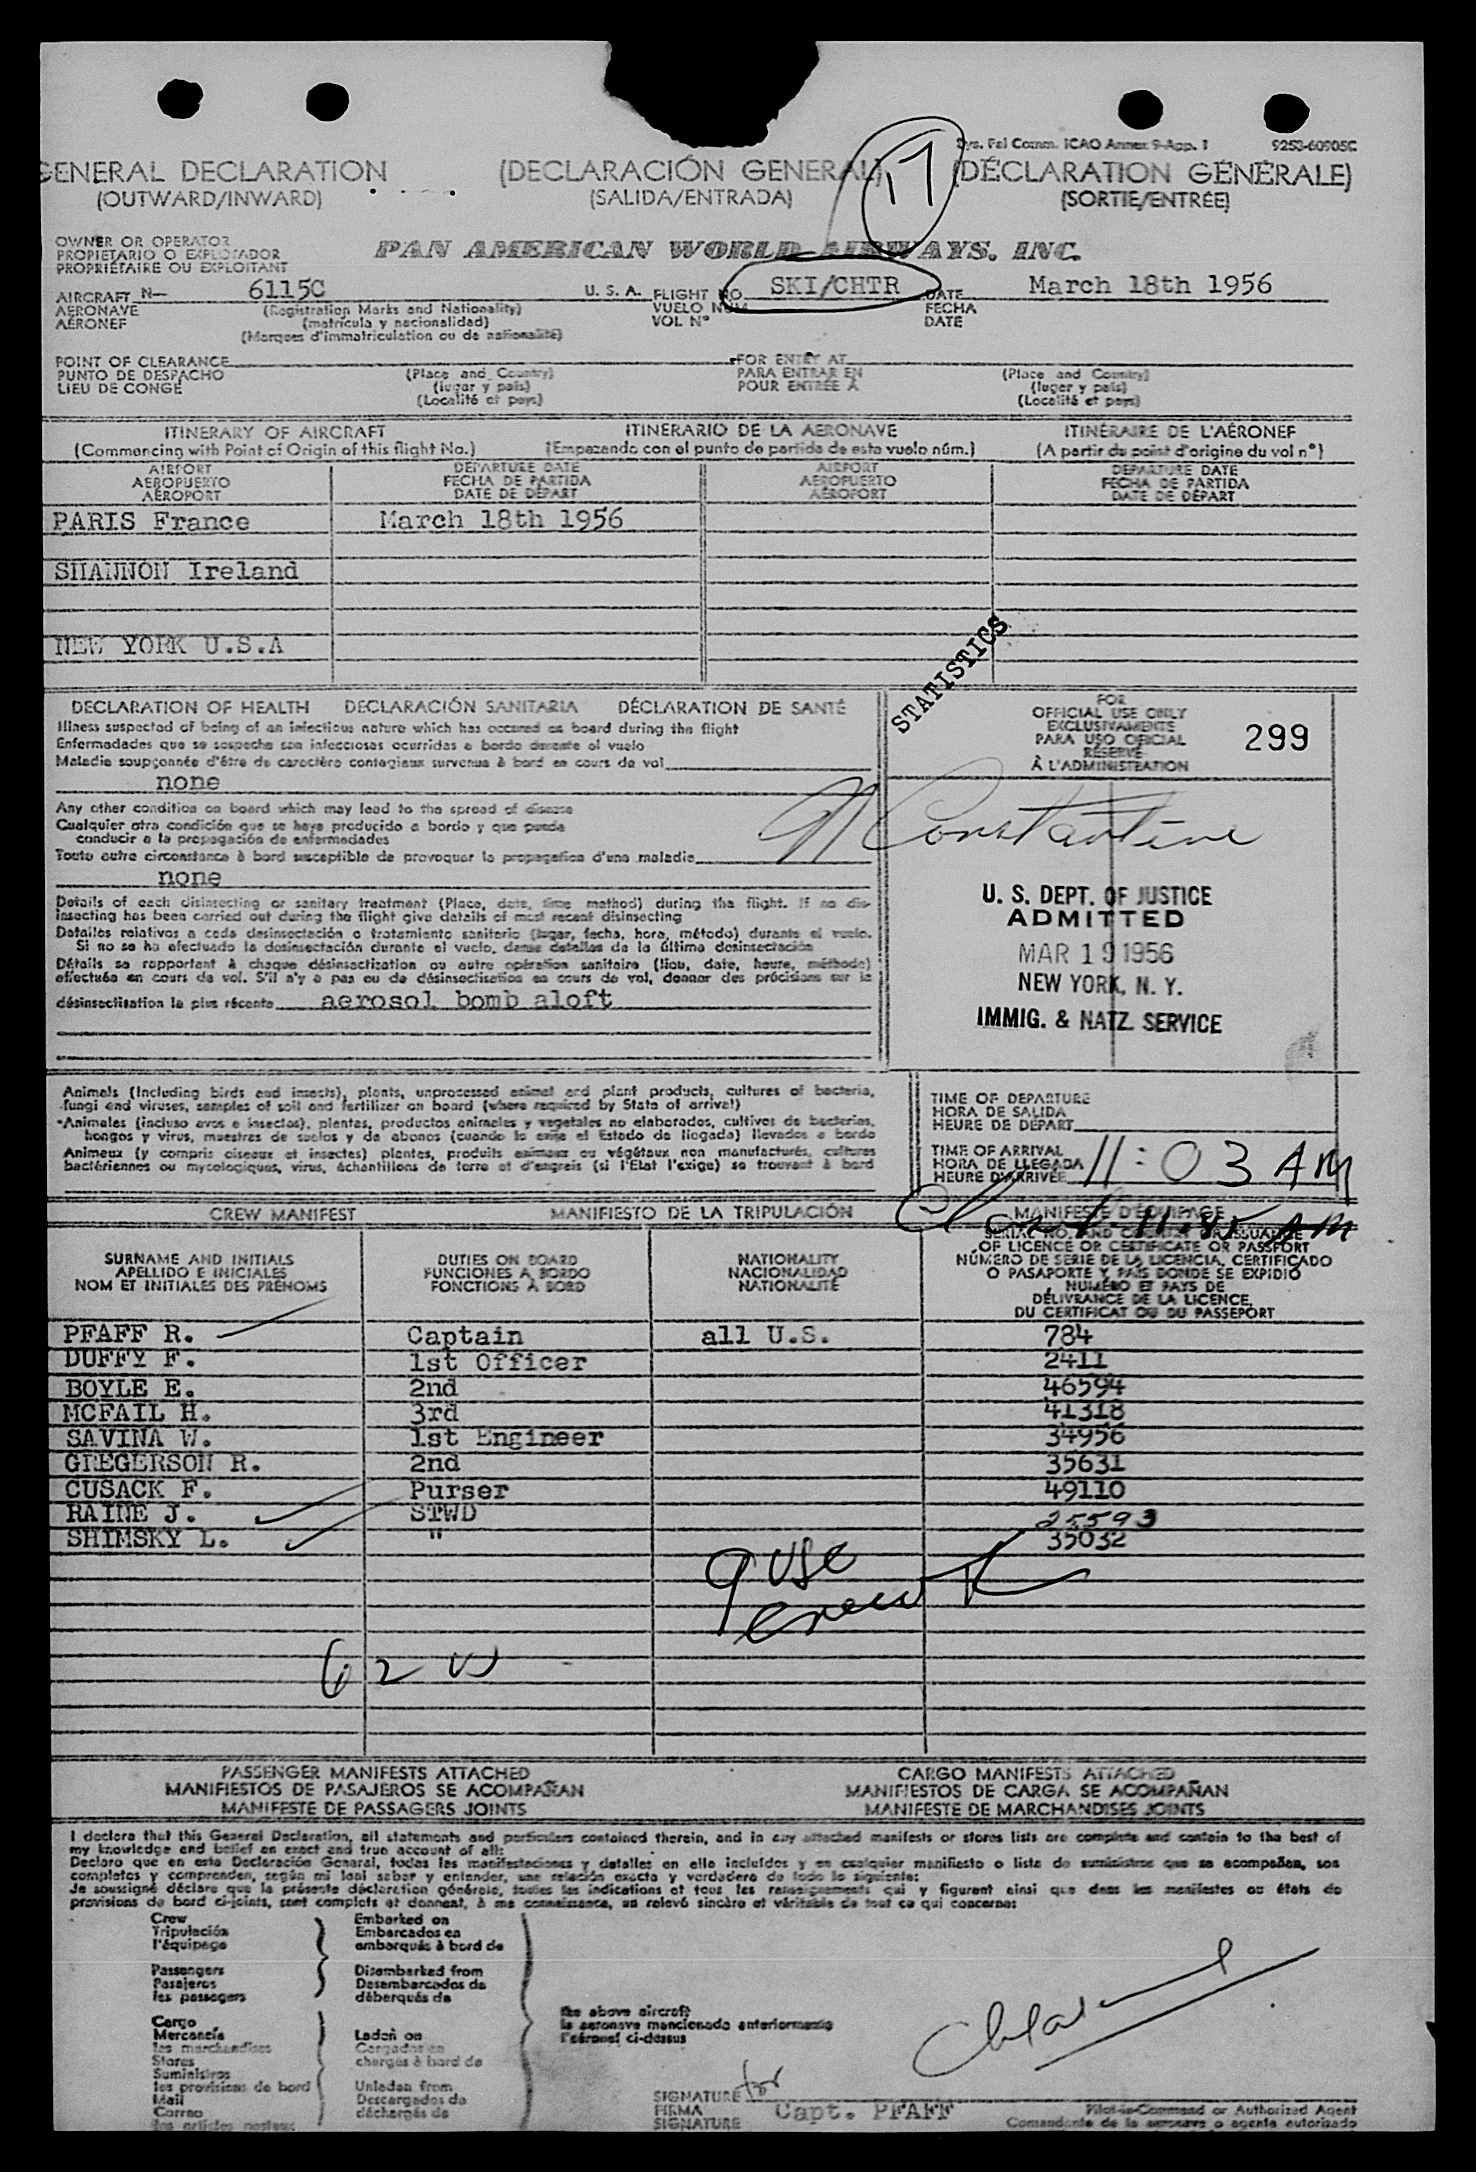 Sys. Fal Comm. ICAO Annex 9-App. 1 9253-60905C
GENERAL DECLARATION (DECLARACIÓN GENERAL) (DÉCLARATION GÉNÉRALE)
(OUTWARD/INWARD) (SALIDA/ENTRADA) (SORTIE/ENTRÉE)
17
OWNER OR OPERATOR
PROPIETARIO O EXPLOTADOR PAN AMERICAN WORLD AIRWAYS, INC.
PROPRIÉTAIRE OU EXPLOITANT
AIRCRAFT N— 6115C U. S. A. FLIGHT NO. SKI/CHTR DATE March 18th 1956
AERONAVE (Registration Marks and Nationality) VUELO NÚM. FECHA
AÉRONEF (matrícula y nacionalidad) VOL N° DATE
(Marques d'immatriculation ou de nationalité)
POINT OF CLEARANCE FOR ENTRY AT
PUNTO DE DESPACHO (Place and Country) PARA ENTRAR EN (Place and Country)
LIEU DE CONGÉ (lugar y país) POUR ENTRÉE À (lugar y país)
(Localité et pays) (Localité et pays)
ITINERARY OF AIRCRAFT ITINERARIO DE LA AERONAVE ITINÉRAIRE DE L'AÉRONEF
(Commencing with Point of Origin of this flight No.) (Empezando con el punto de partida de este vuelo núm.) (A partir du point d'origine du vol n°)
AIRPORT DEPARTURE DATE AIRPORT DEPARTURE DATE
AEROPUERTO FECHA DE PARTIDA AEROPUERTO FECHA DE PARTIDA
AÉROPORT DATE DE DÉPART AÉROPORT DATE DE DÉPART
PARIS France March 18th 1956
SHANNON Ireland
NEW YORK U.S.A
STATISTICS
DECLARATION OF HEALTH DECLARACIÓN SANITARIA DÉCLARATION DE SANTÉ
Illness suspected of being of an infectious nature which has occured on board during the flight
Enfermedades que se sospecha son infecciosas ocurridas a bordo durante el vuelo
Maladie soupçonnée d'être de caractère contagieux survenue à bord en cours de vol
none
Any other condition on board which may lead to the spread of disease
Cualquier otra condición que se haya producido a bordo y que pueda
conducir a la propagación de enfermedades
Toute autre circonstance à bord susceptible de provoquer la propagation d'une maladie
none
Details of each disinsecting or sanitary treatment (Place, date, time method) during the flight. If no dis-
insecting has been carried out during the flight give details of most recent disinsecting
Detalles relativos a cada desinsectación o tratamiento sanitario (lugar, fecha, hora, método) durante el vuelo.
Si no se ha efectuado la desinsectación durante el vuelo, dense detalles de la última desinsectación
Détails se rapportant à chaque désinsectisation ou autre opération sanitaire (lieu, date, heure, méthode)
effectuée en cours de vol. S'il n'y a pas eu de désinsectisation en cours de vol, donner des précisions sur la
désinsectisation la plus récente aerosol bomb aloft
FOR
OFFICIAL USE ONLY
EXCLUSIVAMENTE
PARA USO OFICIAL
RÉSERVÉ
À L'ADMINISTRATION
299
Constantine
U. S. DEPT. OF JUSTICE
ADMITTED
MAR 19 1956
NEW YORK, N. Y.
IMMIG. & NATZ. SERVICE
Animals (Including birds and insects), plants, unprocessed animal and plant products, cultures of bacteria,
fungi and viruses, samples of soil and fertilizer on board (where required by State of arrival)
Animales (incluso aves e insectos), plantas, productos animales y vegetales no elaborados, cultivos de bacterias,
hongos y virus, muestras de suelos y de abonos (cuando lo exija el Estado de llegada) llevados a bordo
Animaux (y compris oiseaux et insectes) plantes, produits animaux ou végétaux non manufacturés, cultures
bactériennes ou mycologiques, virus, échantillons de terre et d'engrais (si l'Etat l'exige) se trouvant à bord
TIME OF DEPARTURE
HORA DE SALIDA
HEURE DE DÉPART
TIME OF ARRIVAL
HORA DE LLEGADA 11:03 AM
HEURE D'ARRIVÉE
11.45 AM
CREW MANIFEST MANIFIESTO DE LA TRIPULACIÓN MANIFESTE D'ÉQUIPAGE
SURNAME AND INITIALS DUTIES ON BOARD NATIONALITY SERIAL NO. AND COUNTRY OF ISSUANCE
APELLIDO E INICIALES FUNCIONES A BORDO NACIONALIDAD OF LICENCE OR CERTIFICATE OR PASSPORT
NOM ET INITIALES DES PRÉNOMS FONCTIONS À BORD NATIONALITÉ NÚMERO DE SERIE DE LA LICENCIA, CERTIFICADO
O PASAPORTE Y PAÍS DONDE SE EXPIDIÓ
NUMÉRO ET PAYS DE
DÉLIVRANCE DE LA LICENCE,
DU CERTIFICAT OU DU PASSEPORT
PFAFF R. Captain all U.S. 784
DUFFY F. 1st Officer 2411
BOYLE E. 2nd 46594
MCFAIL H. 3rd 41318
SAVINA W. 1st Engineer 34956
GREGERSON R. 2nd 35631
CUSACK F. Purser 49110
RAINE J. STWD 25593
SHIMSKY L. " 35032
9 USC
crew
62 W
PASSENGER MANIFESTS ATTACHED CARGO MANIFESTS ATTACHED
MANIFIESTOS DE PASAJEROS SE ACOMPAÑAN MANIFIESTOS DE CARGA SE ACOMPAÑAN
MANIFESTE DE PASSAGERS JOINTS MANIFESTE DE MARCHANDISES JOINTS
I declare that this General Declaration, all statements and particulars contained therein, and in any attached manifests or stores lists are complete and contain to the best of
my knowledge and belief an exact and true account of all:
Declaro que en esta Declaración General, todas las manifestaciones y detalles en ella incluídos y en cualquier manifiesto o lista de suministros que se acompañan, son
completos y comprenden, según mi leal saber y entender, una relación exacta y verdadera de todo lo siguiente:
Je soussigné déclare que la présente déclaration générale, toutes les indications et tous les renseignements qui y figurent ainsi que dans les manifestes ou états de
provisions de bord ci-joints, sont complets et donnent, à ma connaissance, un relevé sincère et véritable de tout ce qui concerne:
Crew Embarked on
Tripulación Embarcados en
l'équipage embarqués à bord de
Passengers Disembarked from
Pasajeros Desembarcados de
les passagers débarqués de
the above aircraft
la aeronave mencionada anteriormente
l'aéronef ci-dessus
Cargo
Mercancía Laden on
les marchandises Cargados en
Stores chargés à bord de
Suministros
les provisions de bord Unladen from
Mail Descargados de
Correo déchargés de
les articles postaux
SIGNATURE for
FIRMA Capt. PFAFF Pilot-in-Command or Authorized Agent
SIGNATURE Comandante de la aeronave o agente autorizado